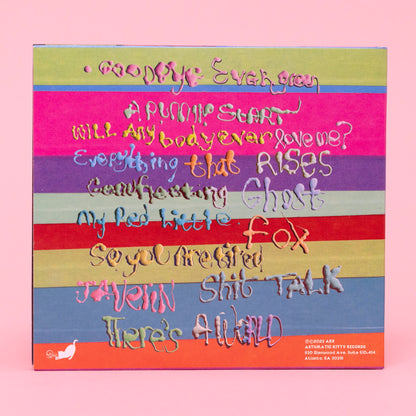 Goodbye Evergreen
A RUNNIN START
Will Anybody ever love me?
Everything that RISES
Genuflecting Ghost
My Red Little Fox
So you Are tired
JAVELIN Shit TALK
There's A World
©℗2023 AKR
ASTHMATIC KITTY RECORDS
Atlanta, GA 30318